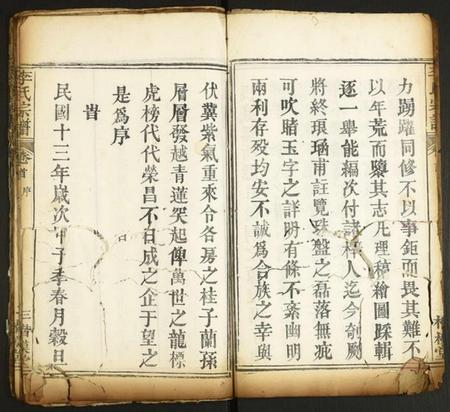 力踴躍同修不以事鉅而畏其難不
以年荒而隳其志凡理稿繪圖踩輯
逐一舉能編次付諸梓人迄今剞劂
將終琅函甫註覽珠盤之磊落無疵
可吹賭玉字之詳明有條不紊幽明
兩利存歿均安不誠為合族之幸與
伏冀紫氣重來合各房之桂子蘭孫
層層發越青蓮突起俾萬世之龍標
虎榜代代榮昌不日成之企于望之
是為序
旹
民國十三年歲次甲子季春月穀旦
李氏宗譜
卷首
序